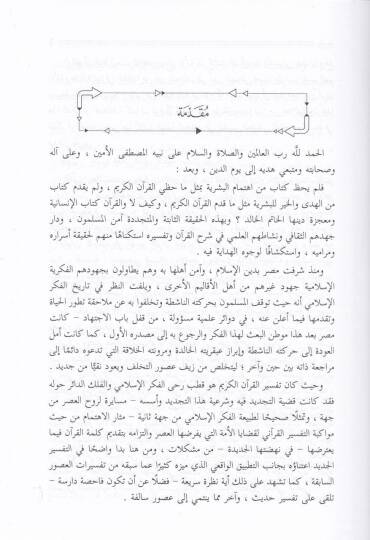 مُقَدِّمَة
الحمد للَّه رب العالمين والصلاة والسلام على نبيه المصطفى الأمين ، وعلى آله
وصحابته ومتبعي هديه إلى يوم الدين ، وبعد :
فلم يحظ كتاب من اهتمام البشرية بمثل ما حظي القرآن الكريم ، ولم يقدم كتاب
من الهدى والخير للبشرية مثل ما قدم القرآن الكريم ، وكيف لا والقرآن كتاب الإنسانية
ومعجزة دينها الخاتم الخالد ؟ وبهذه الحقيقة الثابتة والمتجددة آمن المسلمون ، ودار
جهدهم الثقافي ونشاطهم العلمي في شرح القرآن وتفسيره استكناهًا منهم لحقيقة أسراره
ومراميه ، واستكشافًا لوجوه الهداية فيه .
ومنذ شرفت مصر بدين الإسلام ، وآمن أهلها به وهم يطاولون بجهودهم الفكرية
الإسلامية جهود غيرهم من أهل الأقاليم الأخرى ، ويلفت النظر في تاريخ الفكر
الإسلامي أنه حيث توقف المسلمون بحركته الناشطة وتخلفوا به عن ملاحقة تطور الحياة
وتقدمها فيما أعلن عنه ، في دوائر علمية مسؤولة ، من قفل باب الاجتهاد – كانت
مصر بعد هذا موطن البعث لهذا الفكر والرجوع به إلى مصدره الأول ، كما كانت أمل
العودة إلى حركته الناشطة وإبراز عبقريته الخالدة ومرونته الخلاقة التي تدعوه دائمًا إلى
مراجعة ذاته بين حين وآخر ؛ ليتخلص من زيف عصور التخلف ويعود نقيًّا من جديد .
وحيث كان تفسير القرآن الكريم هو قطب رحى الفكر الإسلامي والفلك الدائر حوله
فقد كانت قضية التجديد فيه وشرعية هذا التجديد وأسسه – مسايرة لروح العصر من
جهة ، وتمثلًا صحيحًا لطبيعة الفكر الإسلامي من جهة ثانية – مثار الاهتمام من حيث
مواكبة التفسير القرآني لقضايا الأمة التي يفرضها العصر والتزامه بتقديم كلمة القرآن فيما
يعترضها – في نهضتها الجديدة – من مشكلات ، ومن هنا بدا واضحًا في التفسير
الجديد اعتناؤه بجانب التطبيق الواقعي الذي ميزه كثيرًا عما سبقه من تفسيرات العصور
السابقة ، كما تشهد على ذلك أية نظرة سريعة – فضلًا عن أن تكون فاحصة دارسة –
تلقى على تفسير حديث ، وآخر مما ينتمي إلى عصور سالفة .